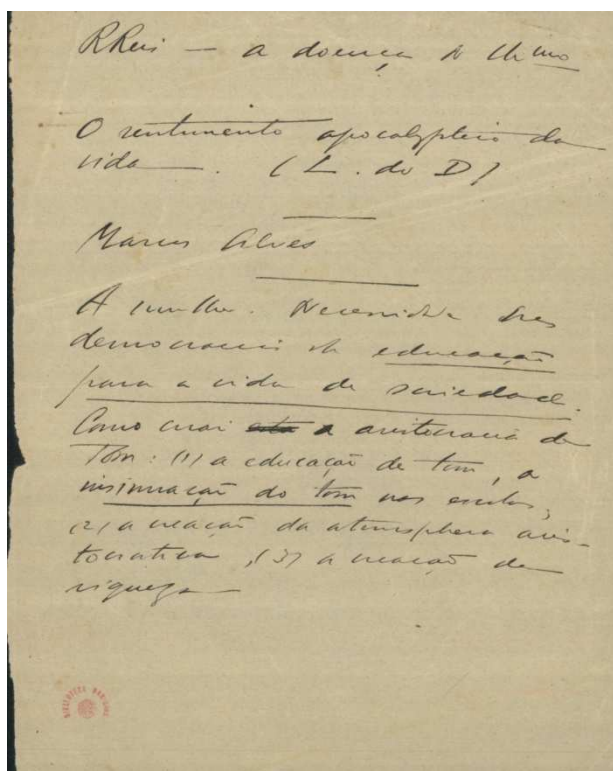 RReis — a doença
O sentimento apocalyptico da
vida. (L. do D)
Marcos Alves
A mulher. Necessidade
democracia educação
para a vida de sociedade.
Como criar a aristocracia de
Tom: (1) a educação de tom, a
insinuação do tom nas escolas,
(2) a creação da atmosphera aris-
tocratica, (3) a creação de
riqueza